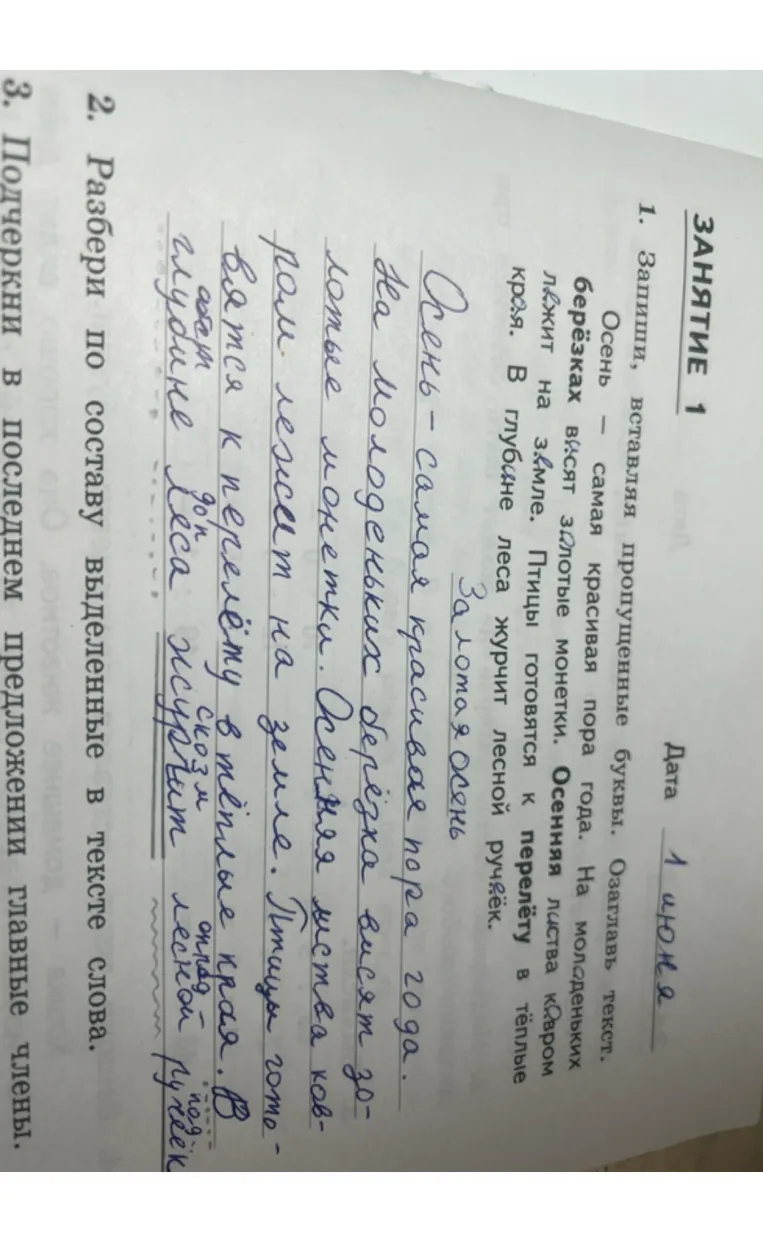 ЗАНЯТИЕ 1
Дата 1 июня
1. Запиши, вставляя пропущенные буквы. Озаглавь текст.
Осень — самая красивая пора года. На молоденьких
берёзках висят золотые монетки. Осенняя листва ковром
лежит на земле. Птицы готовятся к перелёту в тёплые
края. В глубине леса журчит лесной ручеёк.
Залотая осень
Осень - самая красивая пора года.
На молоденьких берёзка висят зо-
лотые монетки. Осенняя листва ков-
ром лежит на земле. Птицы гото-
вятся к перелёту в тёплые края. В
обст доп сказм опред- под-
глубине леса журчит лесной ручеёк
2. Разбери по составу выделенные в тексте слова.
3. Подчеркни в последнем предложении главные члены.